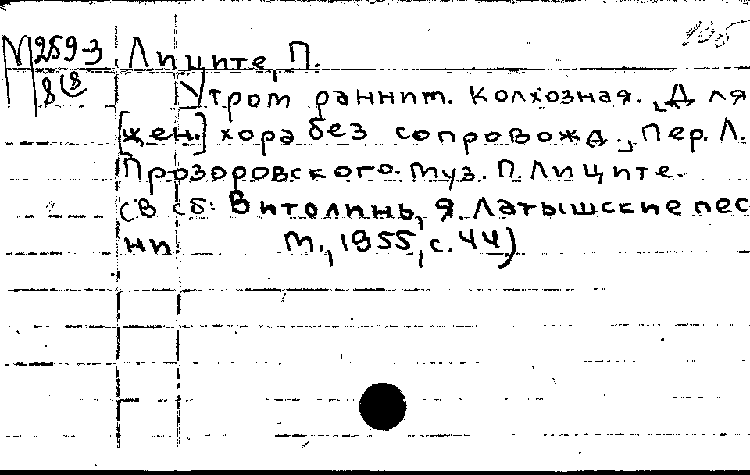 М259-3 Лиците, П.
8(8 Утром ранним. Колхозная. Для
[жен.] хора без сопровожд., Пер. Л.
Прозоровского. Муз. П. Лиците.
(В сб: Витолинь, Я. Латышские пес
ни М., 1955, с. 44)